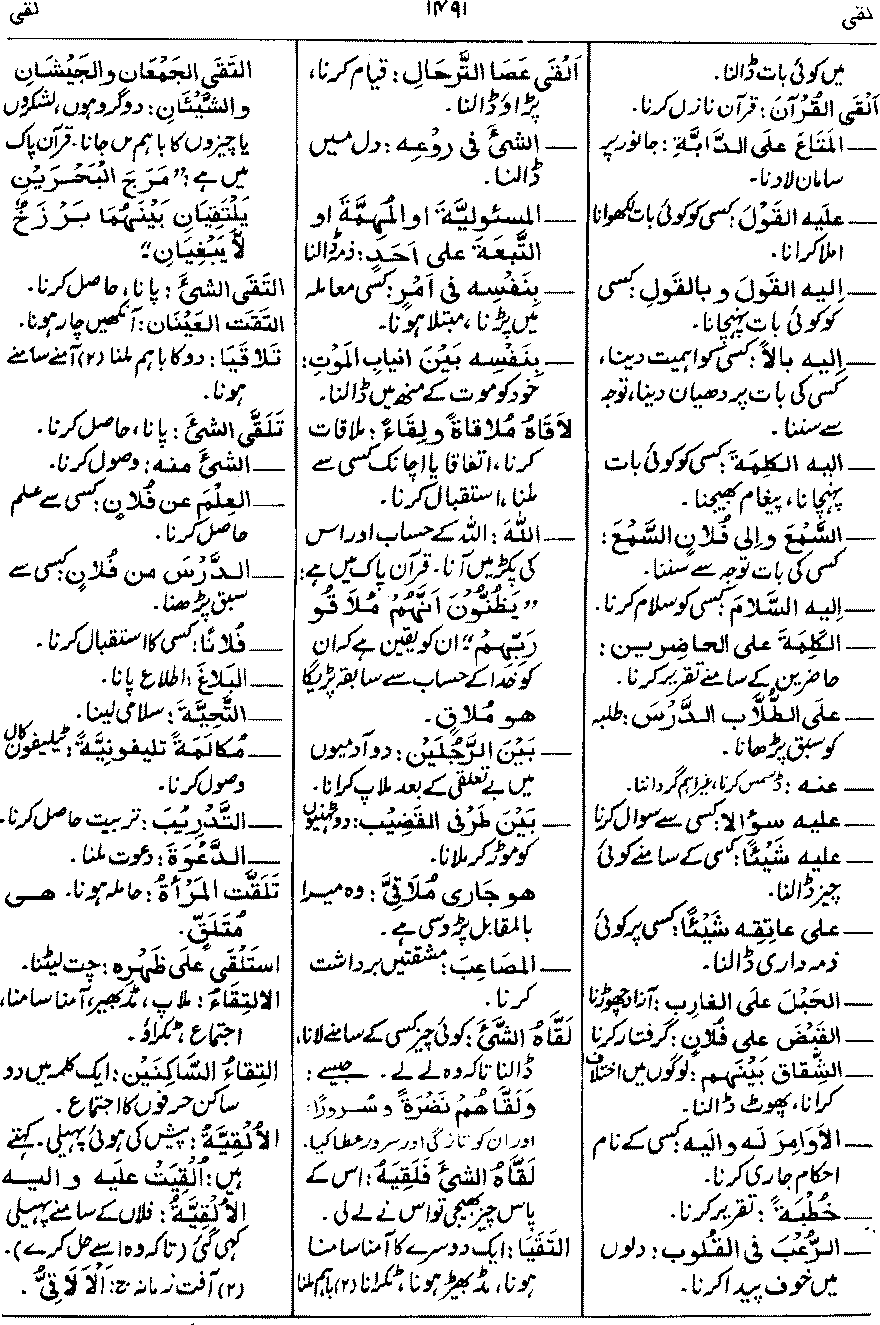 لقی
۱۴۹۱
لقی
میں کوئی بات ڈالنا۔
اَلْقَی القُرْآنَ: قرآن نازل کرنا۔
— المَتَاعَ علی الدَّابَّةِ: جانور پر
سامان لادنا۔
— علیه القَوْلَ: کسی کو کوئی بات لکھوانا
املا کرانا۔
— إلیه القَولَ و بالقَولِ: کسی
کو کوئی بات پہنچانا۔
— إلیه بالاً: کسی کو اہمیت دینا،
کسی کی بات پر دھیان دینا، توجہ
سے سننا۔
— الیه الکلِمَةَ: کسی کو کوئی بات
پہنچانا، پیغام بھیجنا۔
— السَّمْعَ وإلی فُلانٍ السَّمْعَ:
کسی کی بات توجہ سے سننا۔
— إلیه السَّلامَ: کسی کو سلام کرنا۔
— الکَلِمَةَ علی الحاضِرِین:
حاضرین کے سامنے تقریر کرنا۔
— علی الطُّلَّاب الدَّرْسَ: طلبہ
کو سبق پڑھانا۔
— عنه: ڈسمس کرنا، غیر اہم گرداننا۔
— علیه سؤالا: کسی سے سوال کرنا
— علیه شَیْئًا: کسی کے سامنے کوئی
چیز ڈالنا۔
— علی عاتِقِه شَیْئًا: کسی پر کوئی
ذمہ داری ڈالنا۔
— الحَبْلَ علی الغارِب: آزاد چھوڑنا
— القَبْضَ علی فُلانٍ: گرفتار کرنا
— الشِّقاق بَیْنَهم: لوگوں میں اختلاف
کرانا، پھوٹ ڈالنا۔
— الأوَامِرَ لَه والَیه: کسی کے نام
احکام جاری کرنا۔
— خُطْبَةً: تقریر کرنا۔
— الرُّعْبَ فی القُلُوب: دلوں
میں خوف پیدا کرنا۔
اَلْقَی عَصَا التَّرْحَالِ: قیام کرنا،
پڑاؤ ڈالنا۔
— الشیَٔ فی رُوْعِه: دل میں
ڈالنا۔
— المسئولیَّةَ او المُهِمَّةَ او
التَّبِعَةَ علی اَحَدٍ: ذمہ ڈالنا
— بِنَفْسِه فی اَمْرٍ: کسی معاملہ
میں پڑنا، مبتلا ہونا۔
— بِنَفْسِه بَیْنَ انیابِ المَوْتِ:
خود کو موت کے منھ میں ڈالنا۔
لاَقَاهُ مُلاقاةً ولِقاءً: ملاقات
کرنا، اتفاقا یا اچانک کسی سے
ملنا، استقبال کرنا۔
— اللّٰهَ: اللہ کے حساب اور اس
کی پکڑ میں آنا۔ قرآن پاک میں ہے:
”یَظُنُّوْنَ اَنَّهُمْ مُلاَقُو
رَبِّهِمْ“ ان کو یقین ہے کہ ان
کو خدا کے حساب سے سابقہ پڑیگا
هو مُلاقٍ۔
— بَیْنَ الرَّجُلَیْن: دو آدمیوں
میں بے تعلقی کے بعد ملاپ کرانا۔
— بَیْنَ طَرْفَی القَضِیْب: دو ٹہنیوں
کو موڑ کر ملانا۔
هو جَاری مُلاَقِیَّ: وہ میرا
بالمقابل پڑوسی ہے۔
— المصَاعِبَ: مشقتیں برداشت
کرنا۔
لَقَّاهُ الشَّیَٔ: کوئی چیز کسی کے سامنے لانا،
ڈالنا تاکہ وہ لے لے۔ جیسے:
وَلَقَّاهُمْ نَضْرَةً وَّسُرورًا:
اور ان کو تازگی اور سرور عطا کیا۔
لَقَّاهُ الشیَٔ فَلَقِیَهُ: اس کے
پاس چیز بھیجی تو اس نے لے لی۔
التَقَیَا: ایک دوسرے کا آمنا سامنا
ہونا، مڈبھیڑ ہونا، ٹکرانا (۲) باہم ملنا
التَقَی الجَمْعَان والجَیْشَانِ
والشَّیْئَانِ: دو گروہوں، لشکروں
یا چیزوں کا باہم مل جانا۔ قرآن پاک
میں ہے: ”مَرَجَ الْبَحْرَیْنِ
یَلْتَقِیَانِ بَیْنَهُمَا بَرْزَخٌ
لاَّ یَبْغِیَانِ“
التَقَی الشیَٔ: پانا، حاصل کرنا۔
التَقَت العَیْنَان: آنکھیں چار ہونا۔
تَلاَقَیَا: دو کا باہم ملنا (۲) آمنے سامنے
ہونا۔
تَلَقَّی الشیَٔ: پانا، حاصل کرنا۔
— الشیَٔ منه: وصول کرنا۔
— العِلْمَ عن فُلانٍ: کسی سے علم
حاصل کرنا۔
— الدَّرْسَ من فلانٍ: کسی سے
سبق پڑھنا۔
— فُلانًا: کسی کا استقبال کرنا۔
— البَلاَغَ: اطلاع پانا۔
— التَّحِیَّةَ: سلامی لینا۔
— مُکالَمَةً تلیفونِیَّةً: ٹیلیفون کال
وصول کرنا۔
— التَّدْرِیْبَ: تربیت حاصل کرنا۔
— الدَّعْوَةَ: دعوت ملنا۔
تَلَقَّت المَرْأةُ: حاملہ ہونا۔ هی
مُتَلَقٍّ۔
استَلْقَی عَلی ظَهْرِه: چت لیٹنا۔
الالتِقَاءُ: ملاپ، مڈبھیڑ، آمنا سامنا،
اجتماع، ٹکراؤ۔
التِقاءُ السَّاکِنَیْن: ایک کلمہ میں دو
ساکن حرفوں کا اجتماع۔
الأُلْقِیَّةُ: پیش کی ہوئی پہیلی۔ کہتے
ہیں: اُلْقِیَتْ علیه والیه
الأُلْقِیَّةُ: فلاں کے سامنے پہیلی
کہی گئی (تاکہ وہ اسے حل کرے)۔
(۲) آفت زمانہ ج: اَلْاَلاَقِیُّ۔